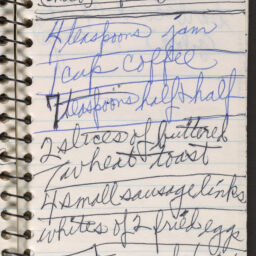 4 teaspoons jam
1 cup coffee
7 teaspoons half & half
2 slices of buttered
wheat toast
4 small sausage links
whites of 2 fried eggs